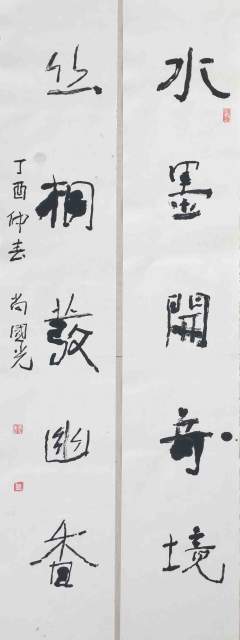 水墨開奇境
丝桐散幽香
丁酉仲春 尚國光